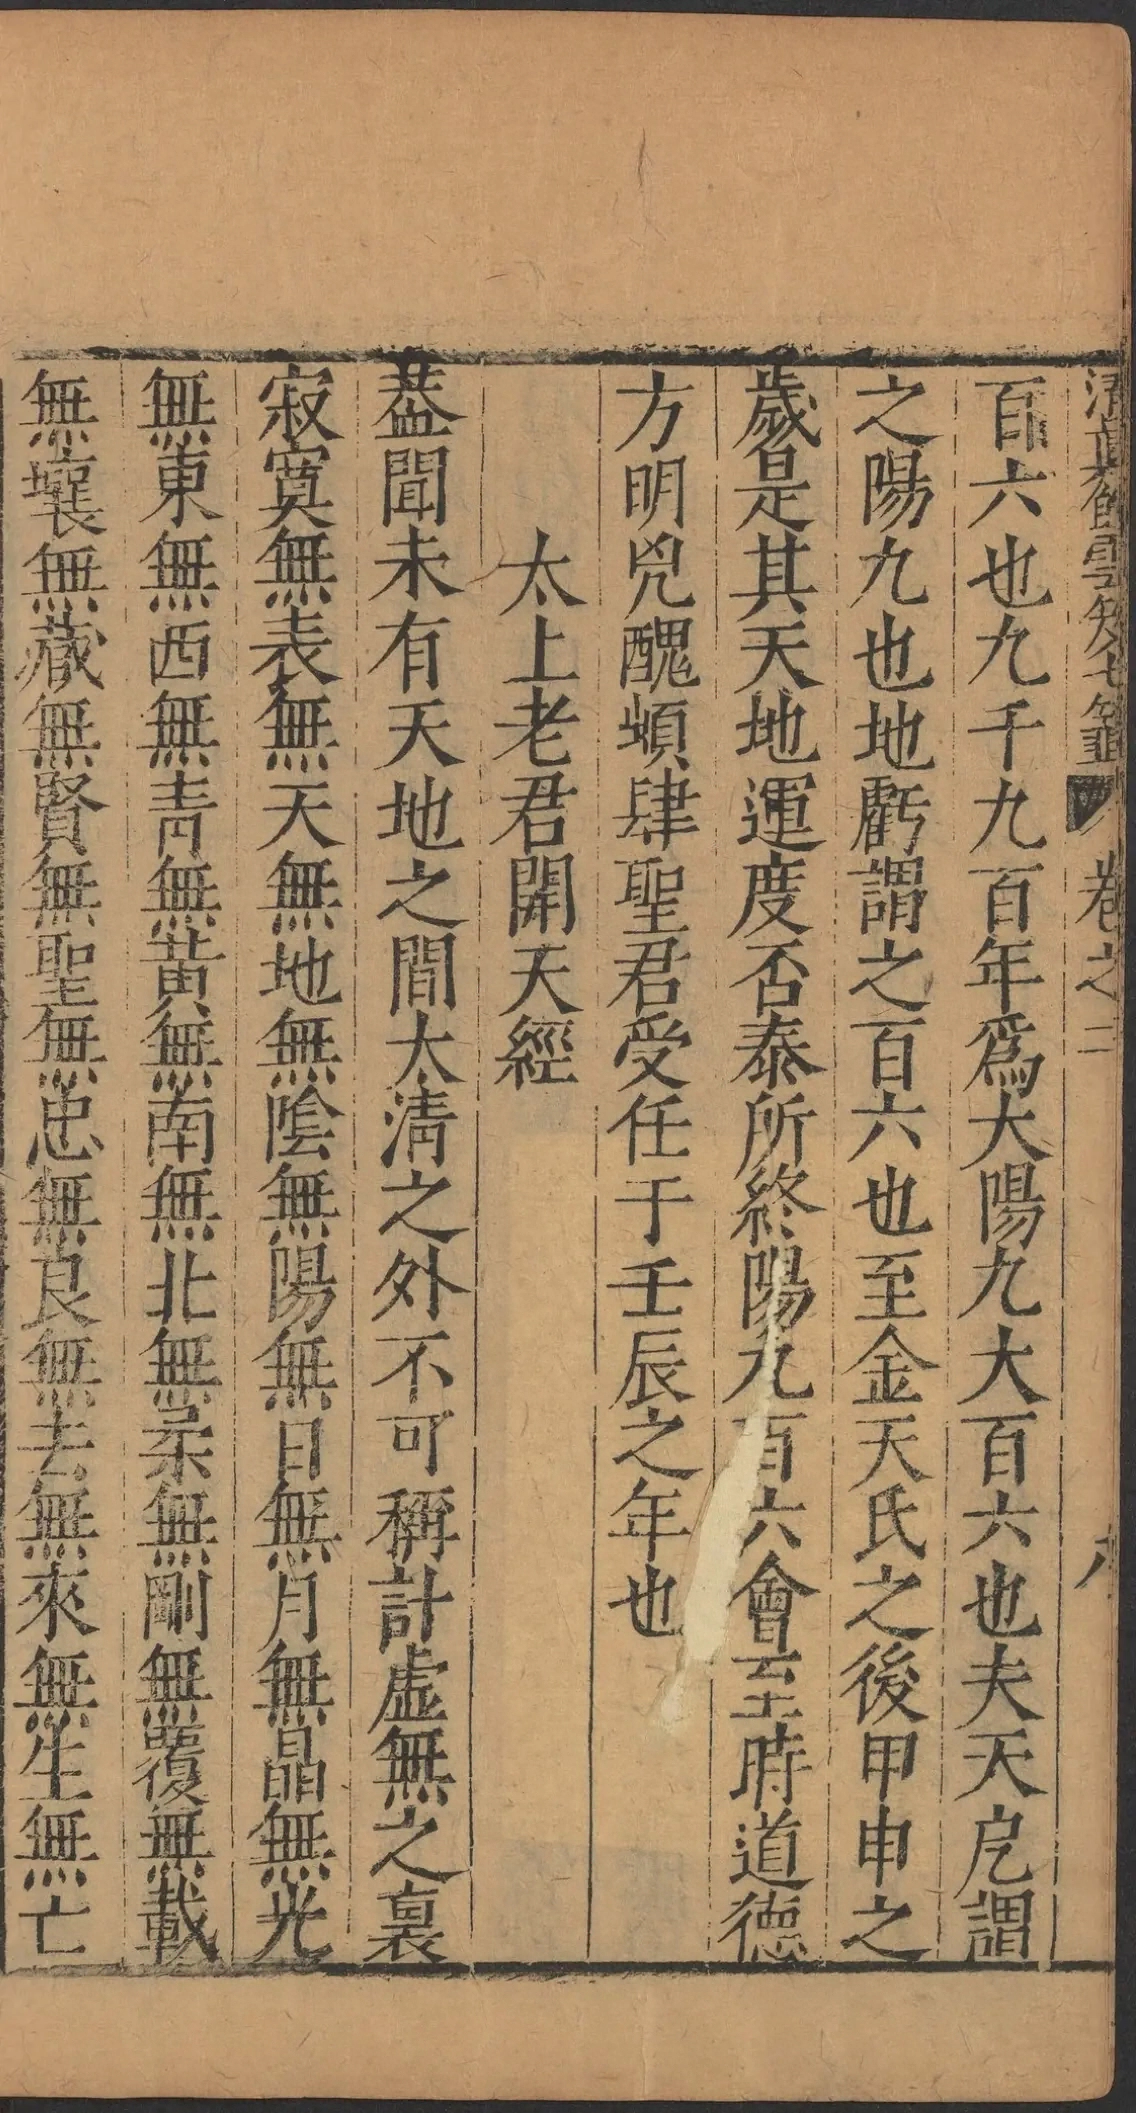 清真舘雲笈七籤 卷之二
百六也九千九百年爲大陽九大百六也夫天戹謂
之陽九也地虧謂之百六也至金天氏之後甲申之
歲是其天地運度否泰所終陽九百六會至時道德
方明兇醜頓肆聖君受任于壬辰之年也
太上老君開天經
葢聞未有天地之間太清之外不可稱計虛無之裏
寂寞無表無天無地無陰無陽無日無月無晶無光
無東無西無青無黃無南無北無柔無剛無覆無載
無壞無藏無賢無聖無忠無良無去無來無生無亡